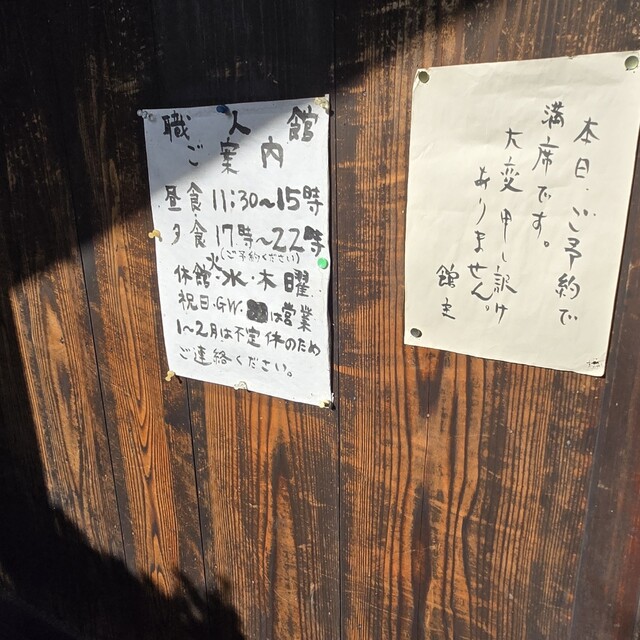 職人館
ご案内
昼食 11:30〜15時
夕食 17時〜22時
(ご予約ください)
休館・火・水・木曜
祝日・GW・は営業
1〜2月は不定休のため
ご連絡ください。
本日、ご予約で
満席です。
大変申し訳け
ありません。
館主